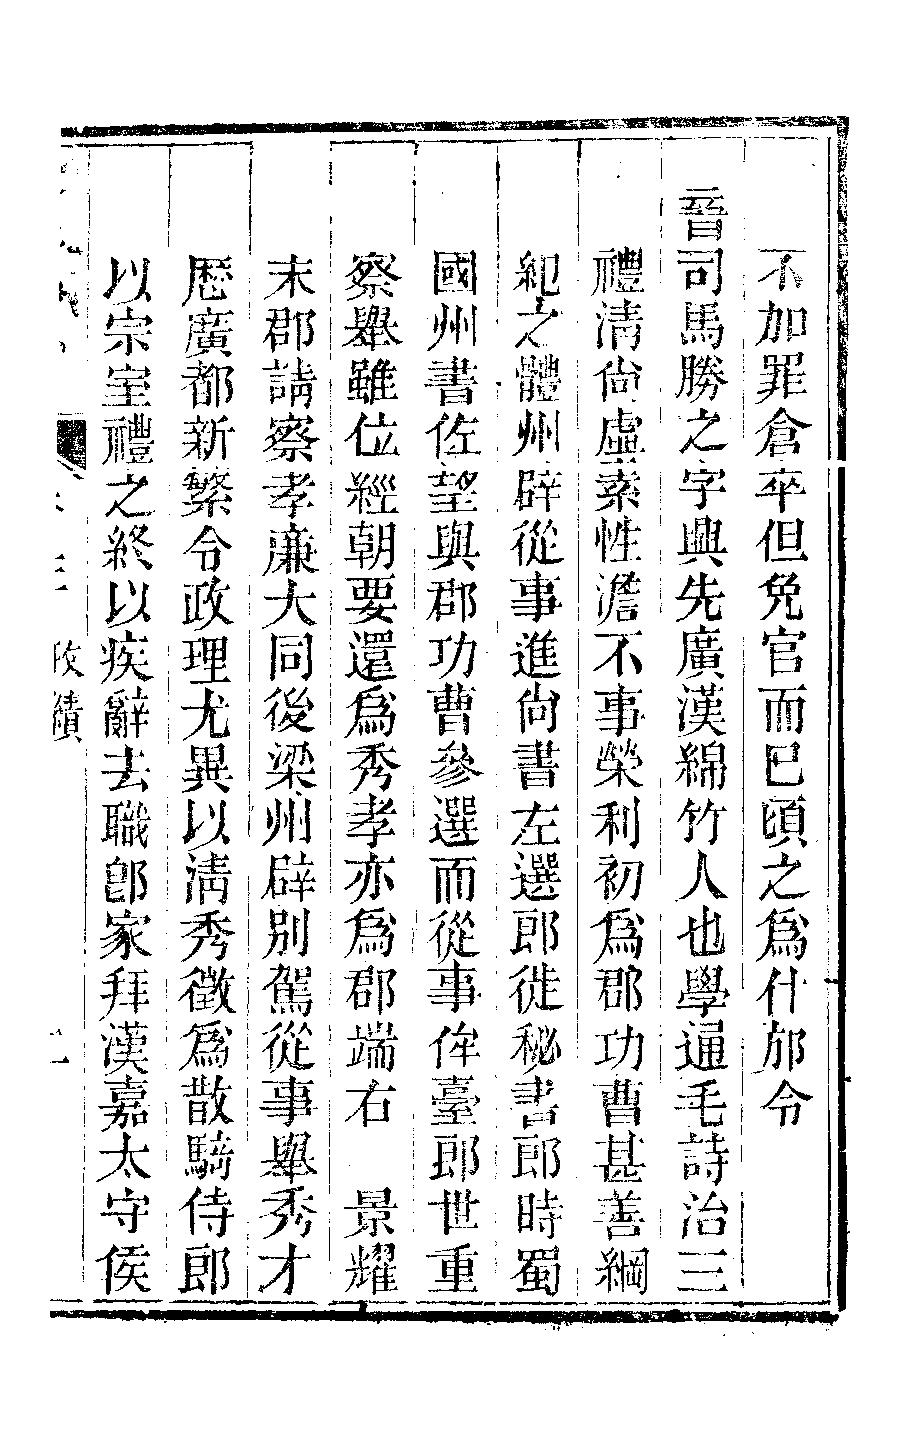 不加罪倉卒但免官而已頃之爲什邡令
晉司馬勝之字興先廣漢綿竹人也學通毛詩治三
禮清尚虛素性澹不事榮利初爲郡功曹甚善綱
紀之體州辟從事進尚書左選郎徙秘書郎時蜀
國州書佐望與郡功曹參選而從事侔臺郎世重
察舉雖位經朝要還爲秀孝亦爲郡端右　景耀
末郡請察孝廉大同後梁州辟別駕從事舉秀才
歷廣都新繁令政理尤異以清秀徵爲散騎侍郎
以宗室禮之終以疾辭去職即家拜漢嘉太守侯
政績